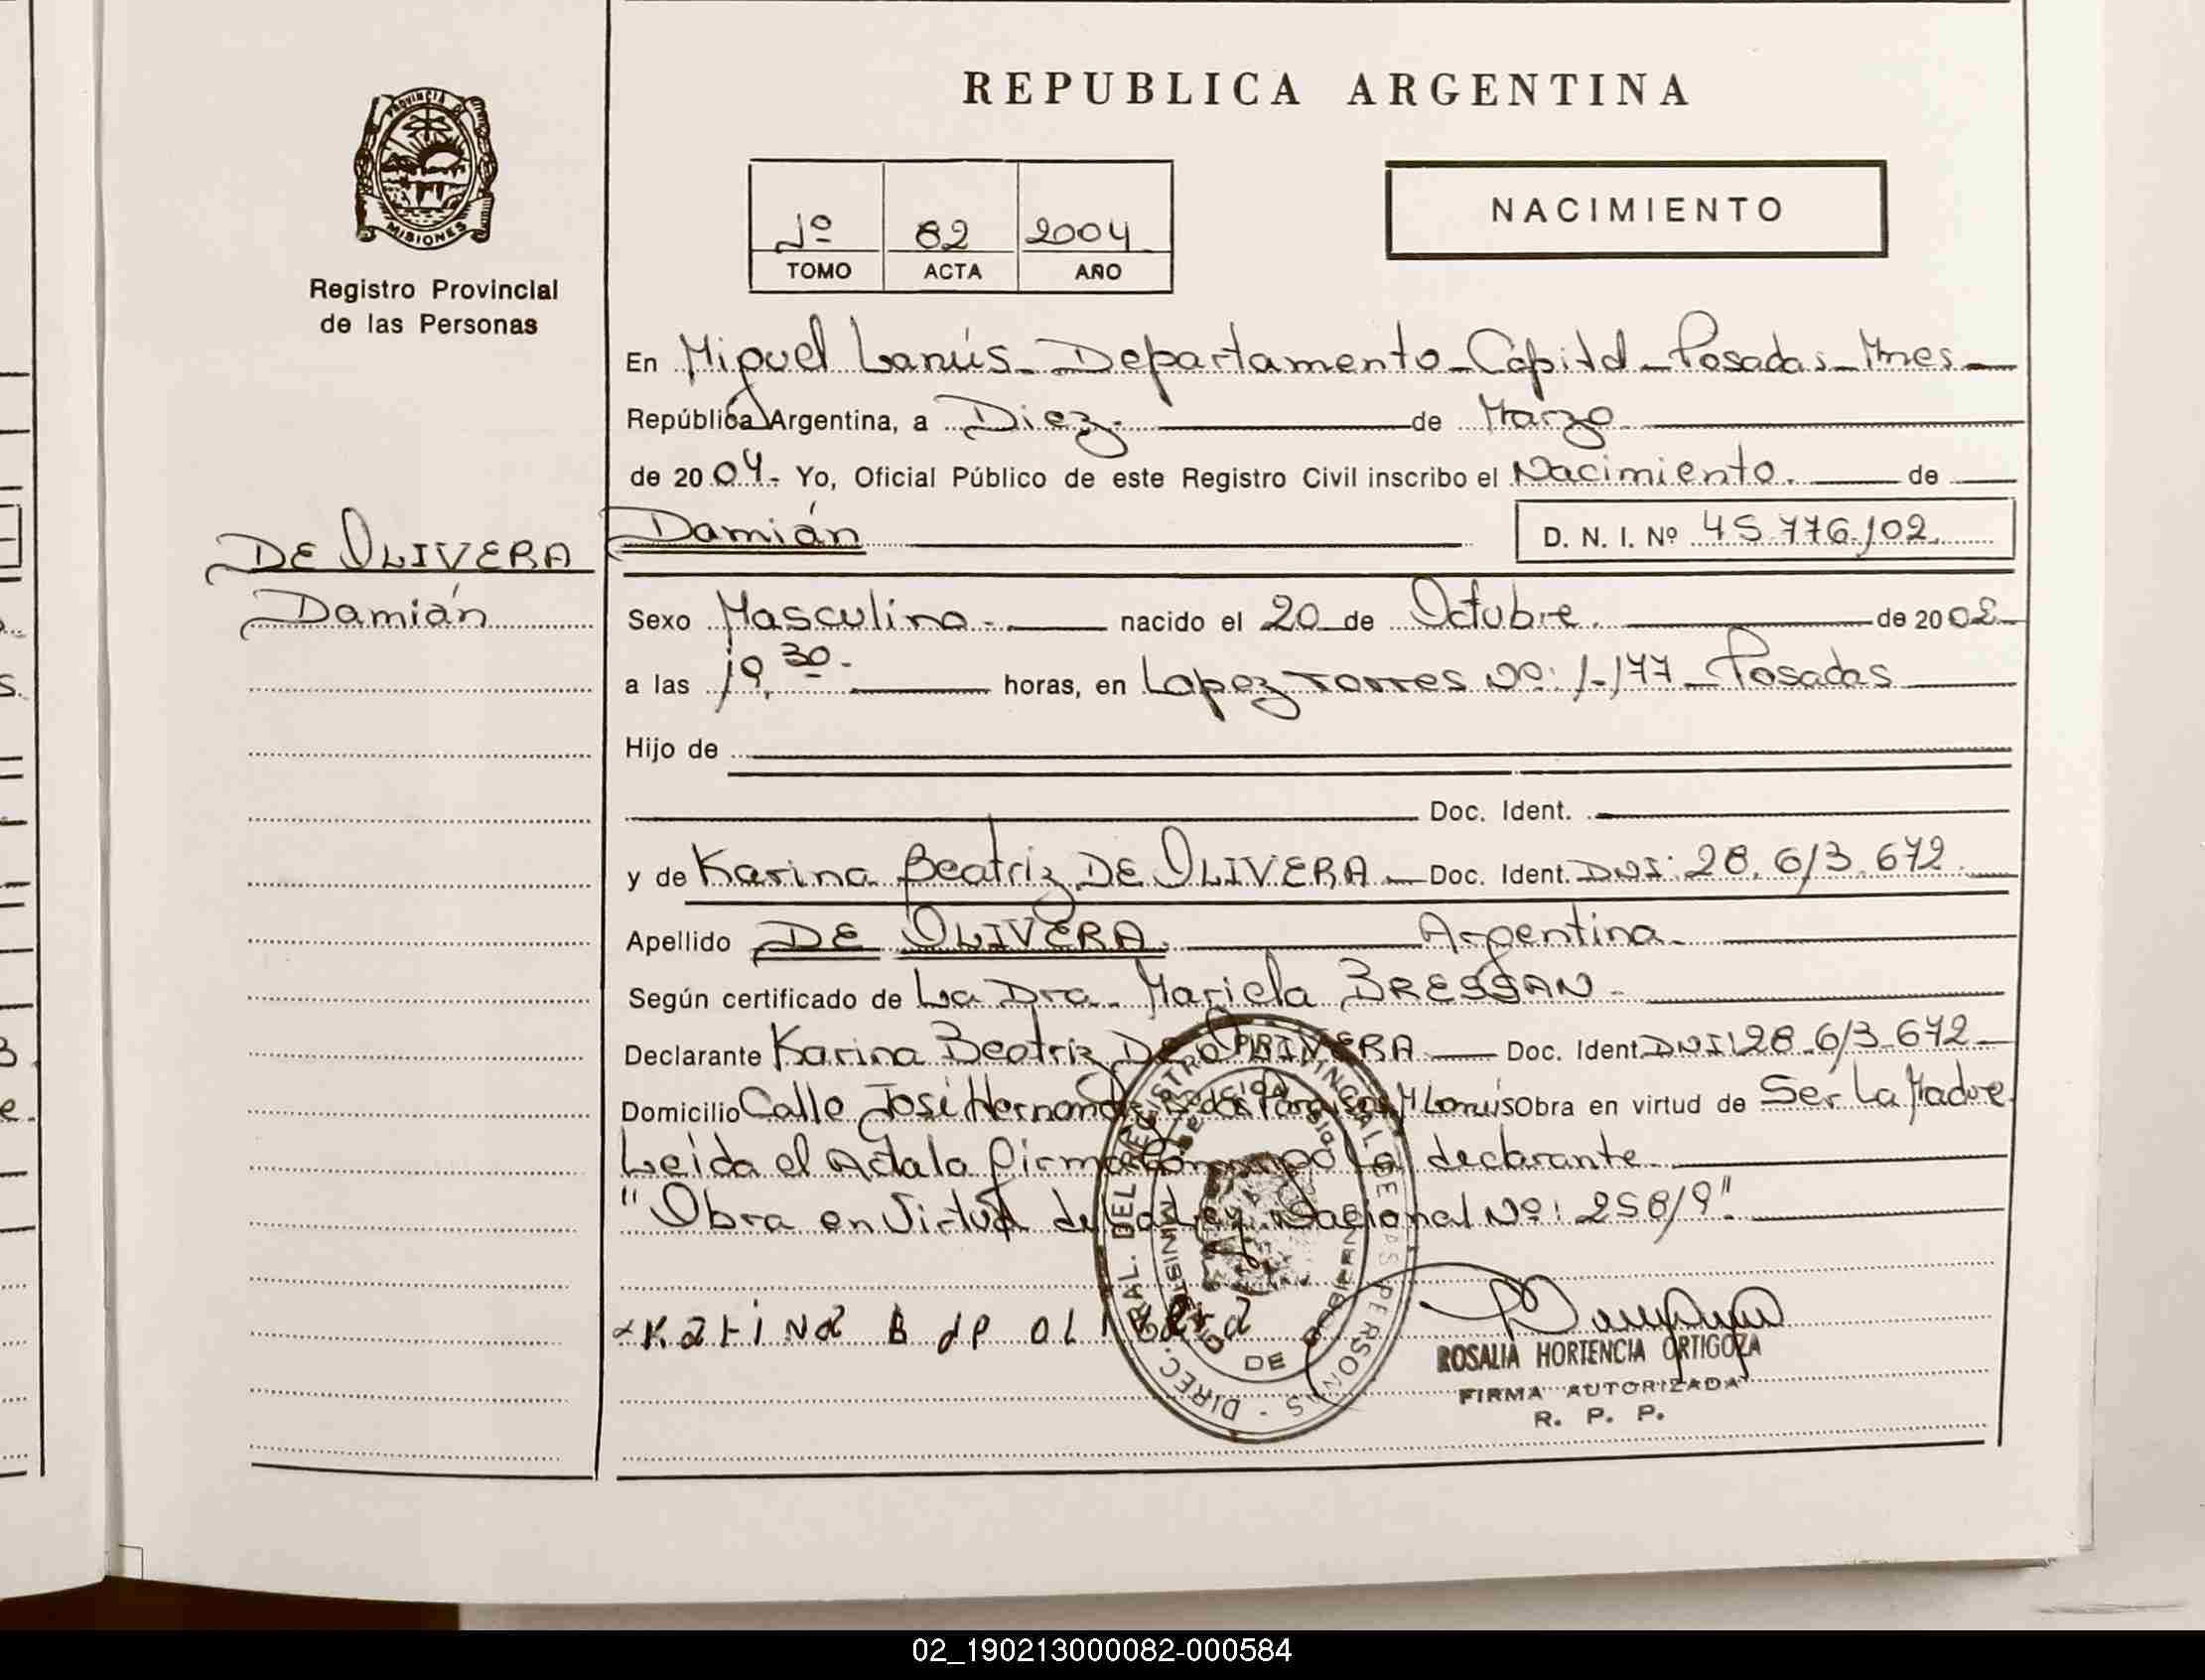 REPUBLICA ARGENTINA
PROVINCIA DE
MISIONES
Registro Provincial
de las Personas
1º 82 2004
TOMO ACTA AÑO
NACIMIENTO
En Miguel Lanús - Departamento - Capital - Posadas - Mnes -
República Argentina, a Diez - de Marzo
de 2004.- Yo, Oficial Público de este Registro Civil inscribo el Nacimiento. de
Damián D. N. I. Nº 45.776.102
DE OLIVERA
Damián
Sexo Masculino.- nacido el 20 de Octubre. de 2002
a las 19,30.- horas, en Lopez Torres Nº: 1.177 - Posadas
Hijo de
Doc. Ident.
y de Karina Beatriz DE OLIVERA - Doc. Ident. DNI: 28.613.672
Apellido DE OLIVERA. Argentina.
Según certificado de La Dra. Mariela BRESSAN.
Declarante Karina Beatriz DE OLIVERA - Doc. Ident. DNI: 28.613.672
Domicilio Calle José Hernandez M Lanús Obra en virtud de Ser La Madre
Leida el Acta la firma la declarante
"Obra en Virtud de La Ley Nacional Nº: 25819"
Karina B de Olivera
DIREC. GRAL. DEL REGISTRO PROVINCIAL DE LAS PERSONAS
MINISTERIO DE GOBIERNO
ROSALIA HORTENCIA ORTIGOZA
FIRMA AUTORIZADA
R. P. P.
02_190213000082-000584